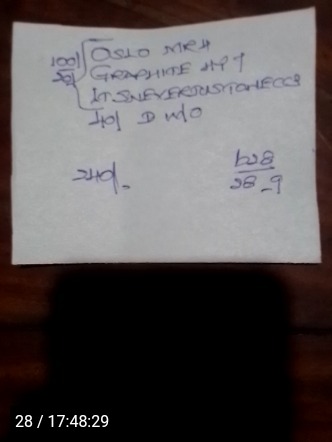 100/ OSLO MRH
50/ GRAPHITE HP 9
ITSNEVERJUSTONECCB
40/ D W/O
240/.
628
28-9
28 / 17:48:29